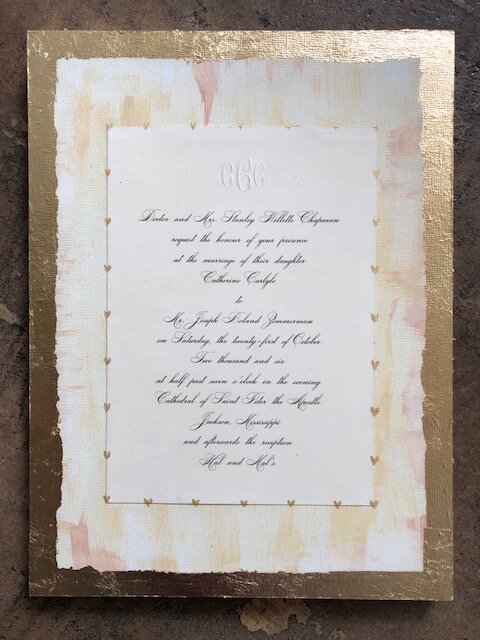 CCC
Doctor and Mrs. Stanley Willetts Chapman
request the honour of your presence
at the marriage of their daughter
Catherine Carlyle
to
Mr. Joseph Roland Zimmerman
on Saturday, the twenty-first of October
Two thousand and six
at half past seven o'clock in the evening
Cathedral of Saint Peter the Apostle
Jackson, Mississippi
and afterwards the reception
Hal and Mal's